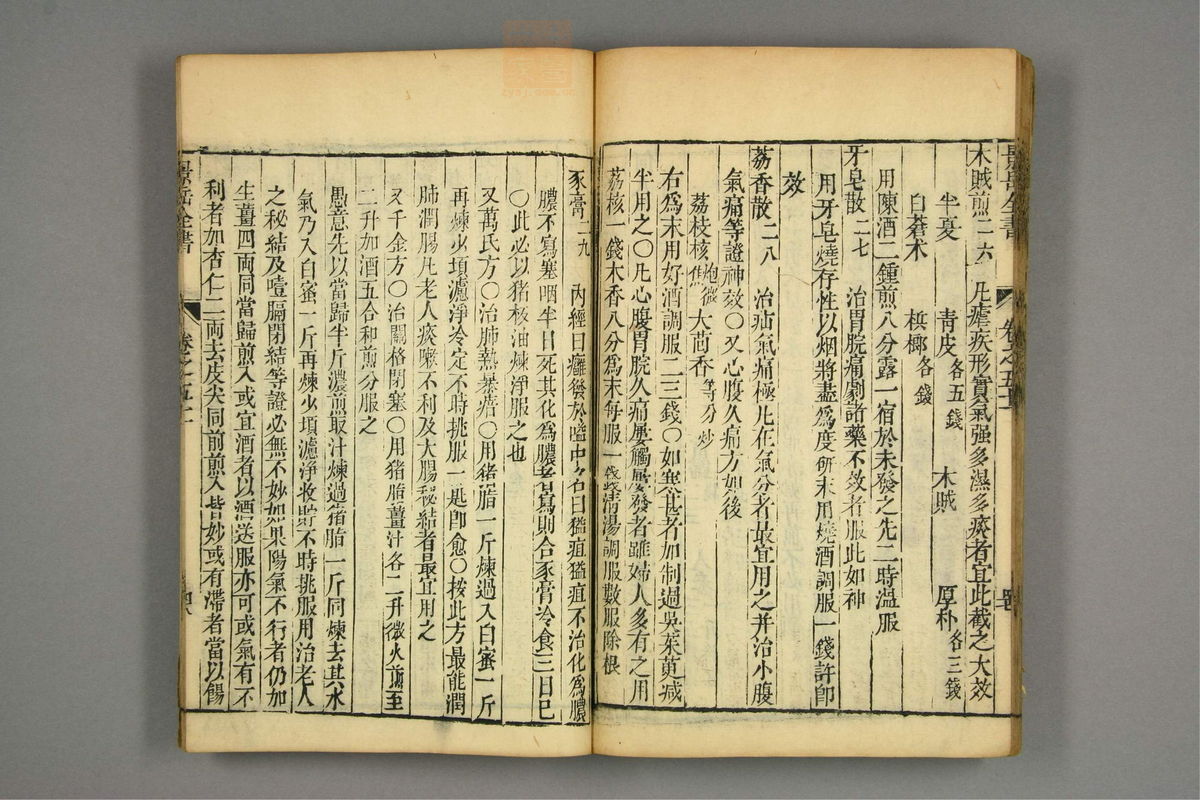 木賊煎二六　凡瘧疾形實氣强多濕多痰者宜此截之大效
半夏　青皮各五錢　木賊　厚朴各三錢
白蒼术　檳榔各錢
用陳酒二鍾煎八分露一宿於未發之先二時溫服
牙皂散二七　治胃脘痛劇諸藥不效者服此如神
用牙皂燒存性以烟將盡爲度研末用燒酒調服一錢許卽
效
荔香散二八　治疝氣痛極凡在氣分者最宜用之并治小腹
氣痛等證神效〇又心腹久痛方如後
荔枝核炮微焦　大茴香等分炒
右爲末用好酒調服二三錢〇如寒甚者加制過吳茱萸减
半用之〇凡心腹胃脘久痛屢觸屢發者雖婦人多有之用
荔核一錢木香八分爲末每服一錢清湯調服數服除根
景岳全書　卷之五十一
豕膏二九　內經曰癰發於嗌中名曰猛疽猛疽不治化爲膿
膿不寫塞咽半日死其化爲膿者寫則合豕膏冷食三日已
〇此必以猪板油煉淨服之也
又萬氏方〇治肺熱暴瘖〇用猪脂一斤煉過入白蜜一斤
再煉少頃濾淨冷定不時挑服一匙卽愈〇按此方最能潤
肺潤腸凡老人痰嗽不利及大腸秘結者最宜用之
又千金方〇治關格閉塞〇用猪脂薑汁各二升微火煎至
二升加酒五合和煎分服之
愚意先以當歸半斤濃煎取汁煉過猪脂一斤同煉去其水
氣乃入白蜜一斤再煉少頃濾淨收貯不時挑服用治老人
之秘結及噎膈閉結等證必無不妙如果陽氣不行者仍加
生薑四両同當歸煎入或宜酒者以酒送服亦可或氣有不
利者加杏仁二両去皮尖同前煎入皆妙或有滯者當以餳
景岳全書　卷之五十一　四八